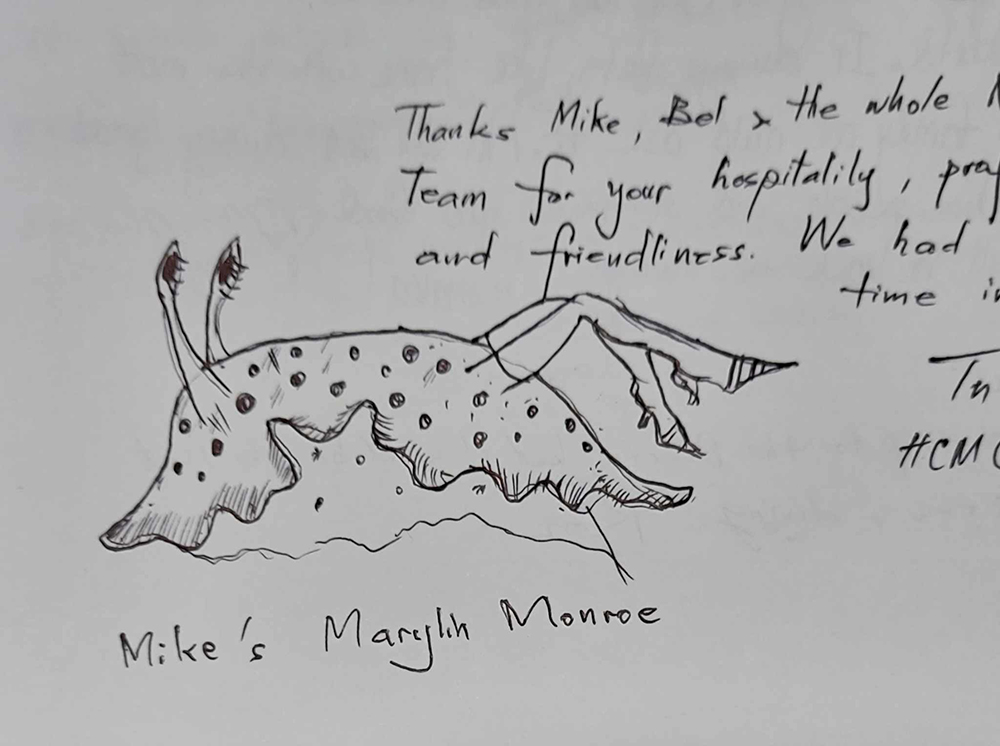 Thanks Mike, Bel & the whole
Team for your hospitality,
and friendliness. We had
time in
HCM
Mike's Marylin Monroe